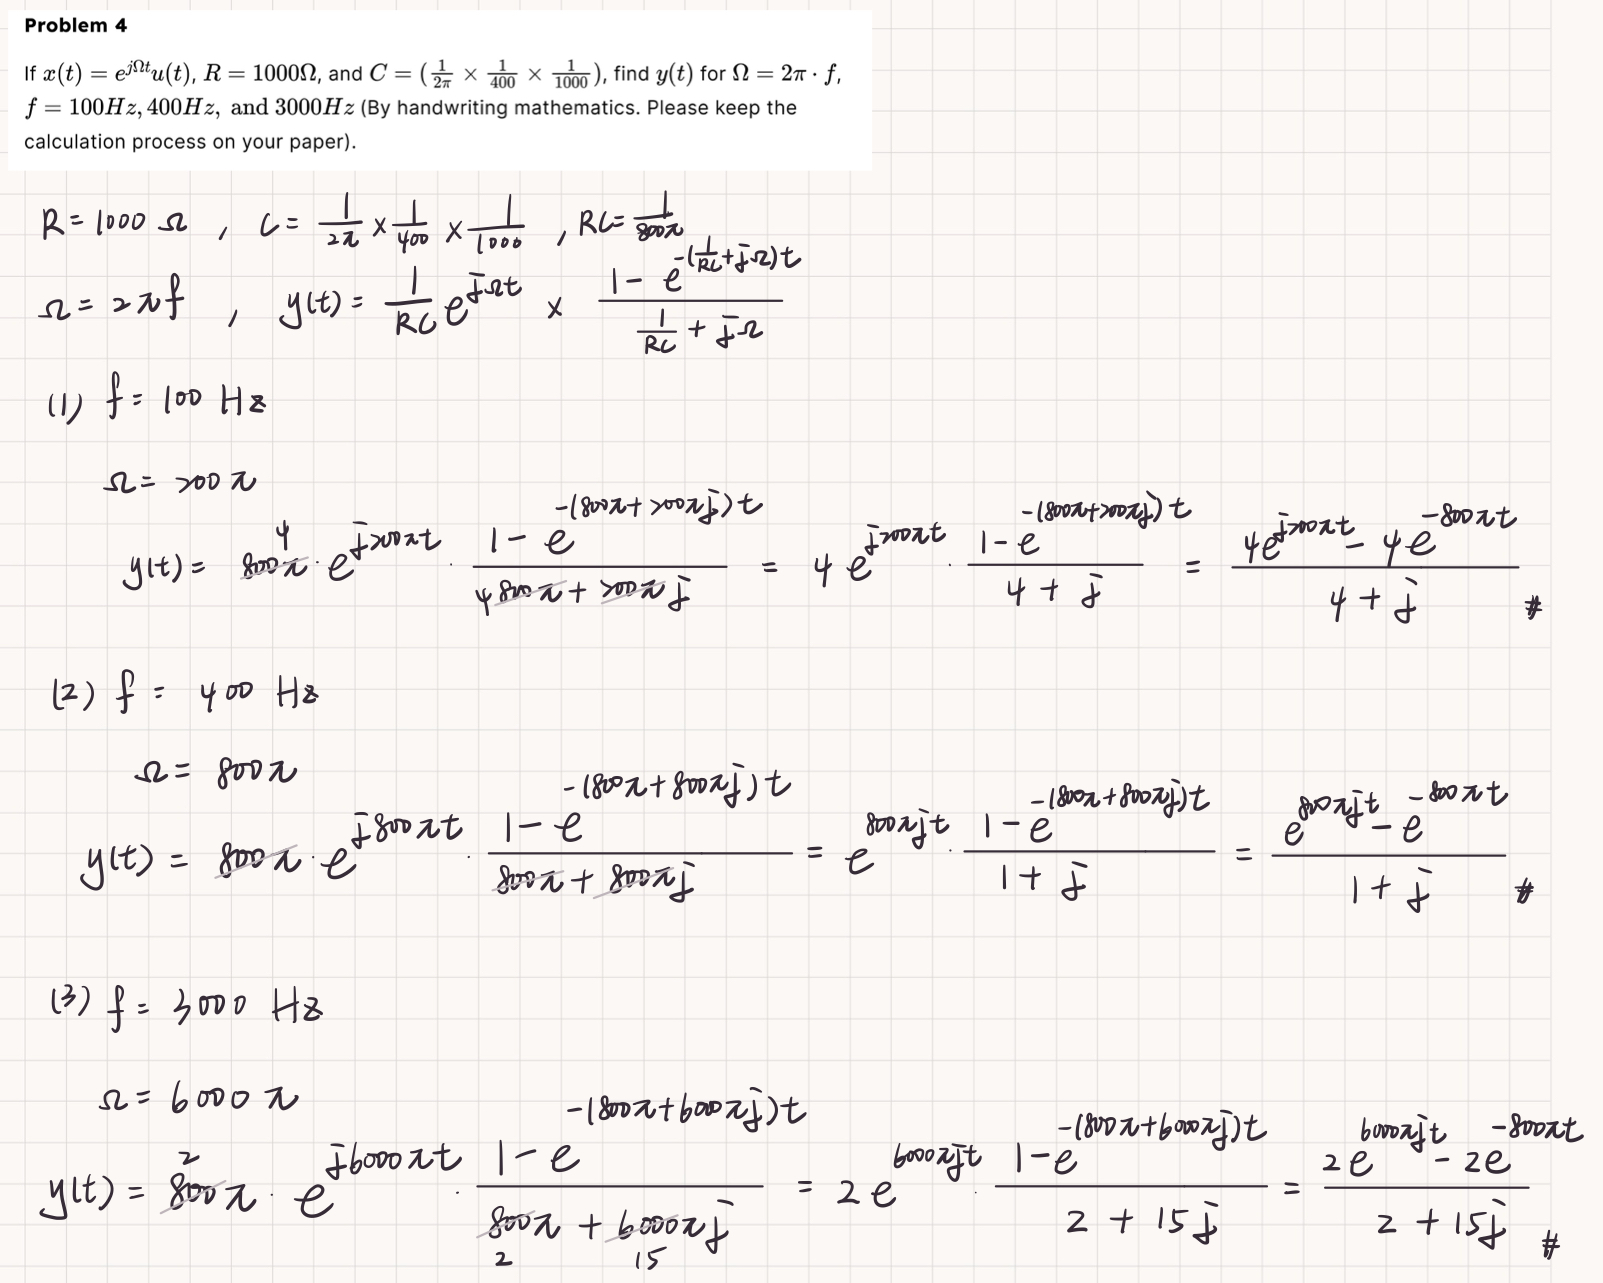 Problem 4
If x(t) = e^{jΩt}u(t), R = 1000Ω, and C = (\frac{1}{2π} × \frac{1}{400} × \frac{1}{1000}), find y(t) for Ω = 2π · f,
f = 100Hz, 400Hz, and 3000Hz (By handwriting mathematics. Please keep the
calculation process on your paper).
R = 1000 Ω , C = \frac{1}{2π} × \frac{1}{400} × \frac{1}{1000} , RC = \frac{1}{800π}
Ω = 2πf , y(t) = \frac{1}{RC} e^{jΩt} × \frac{1 - e^{-(\frac{1}{RC}+jΩ)t}}{\frac{1}{RC} + jΩ}
(1) f = 100 Hz
Ω = 200π
y(t) = 800π^{4} · e^{j200πt} · \frac{1 - e^{-(800π+200πj)t}}{4 800π + 200πj} = 4 e^{j200πt} · \frac{1 - e^{-(800π+200πj)t}}{4 + j} = \frac{4e^{j200πt} - 4e^{-800πt}}{4 + j} #
(2) f = 400 Hz
Ω = 800π
y(t) = 800π · e^{j800πt} · \frac{1 - e^{-(800π+800πj)t}}{800π + 800πj} = e^{800πjt} · \frac{1 - e^{-(800π+800πj)t}}{1 + j} = \frac{e^{800πjt} - e^{-800πt}}{1 + j} #
(3) f = 3000 Hz
Ω = 6000π
y(t) = 800^{2}π · e^{j6000πt} · \frac{1 - e^{-(800π+6000πj)t}}{800_{2}π + 6000_{15}πj} = 2 e^{6000πjt} · \frac{1 - e^{-(800π+6000πj)t}}{2 + 15j} = \frac{2e^{6000πjt} - 2e^{-800πt}}{2 + 15j} #